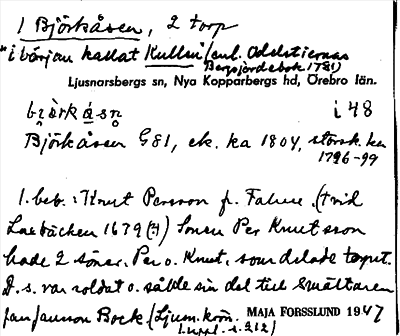 1 Björkåsen, 2 torp
"i början kallat Kullen" (enl. Odelstiernas
Bergsjordebok 1781)
Ljusnarsbergs sn, Nya Kopparbergs hd, Örebro län.
i 48
Björkåsen G81, ek. ka 1804, storsk. ka
1796-99
1. beb.: Knut Persson fr. Falun. (tvid
Laxbäcken 1679 (?)) Sonen Per Knutsson
hade 2 söner, Per o. Knut, som delade torpet.
D. s. var soldat o. sålde sin del till Smältaren
Jan Jansson Bock (Ljusn. krön.
1. uppl. s. 212)
MAJA FORSSLUND 1947